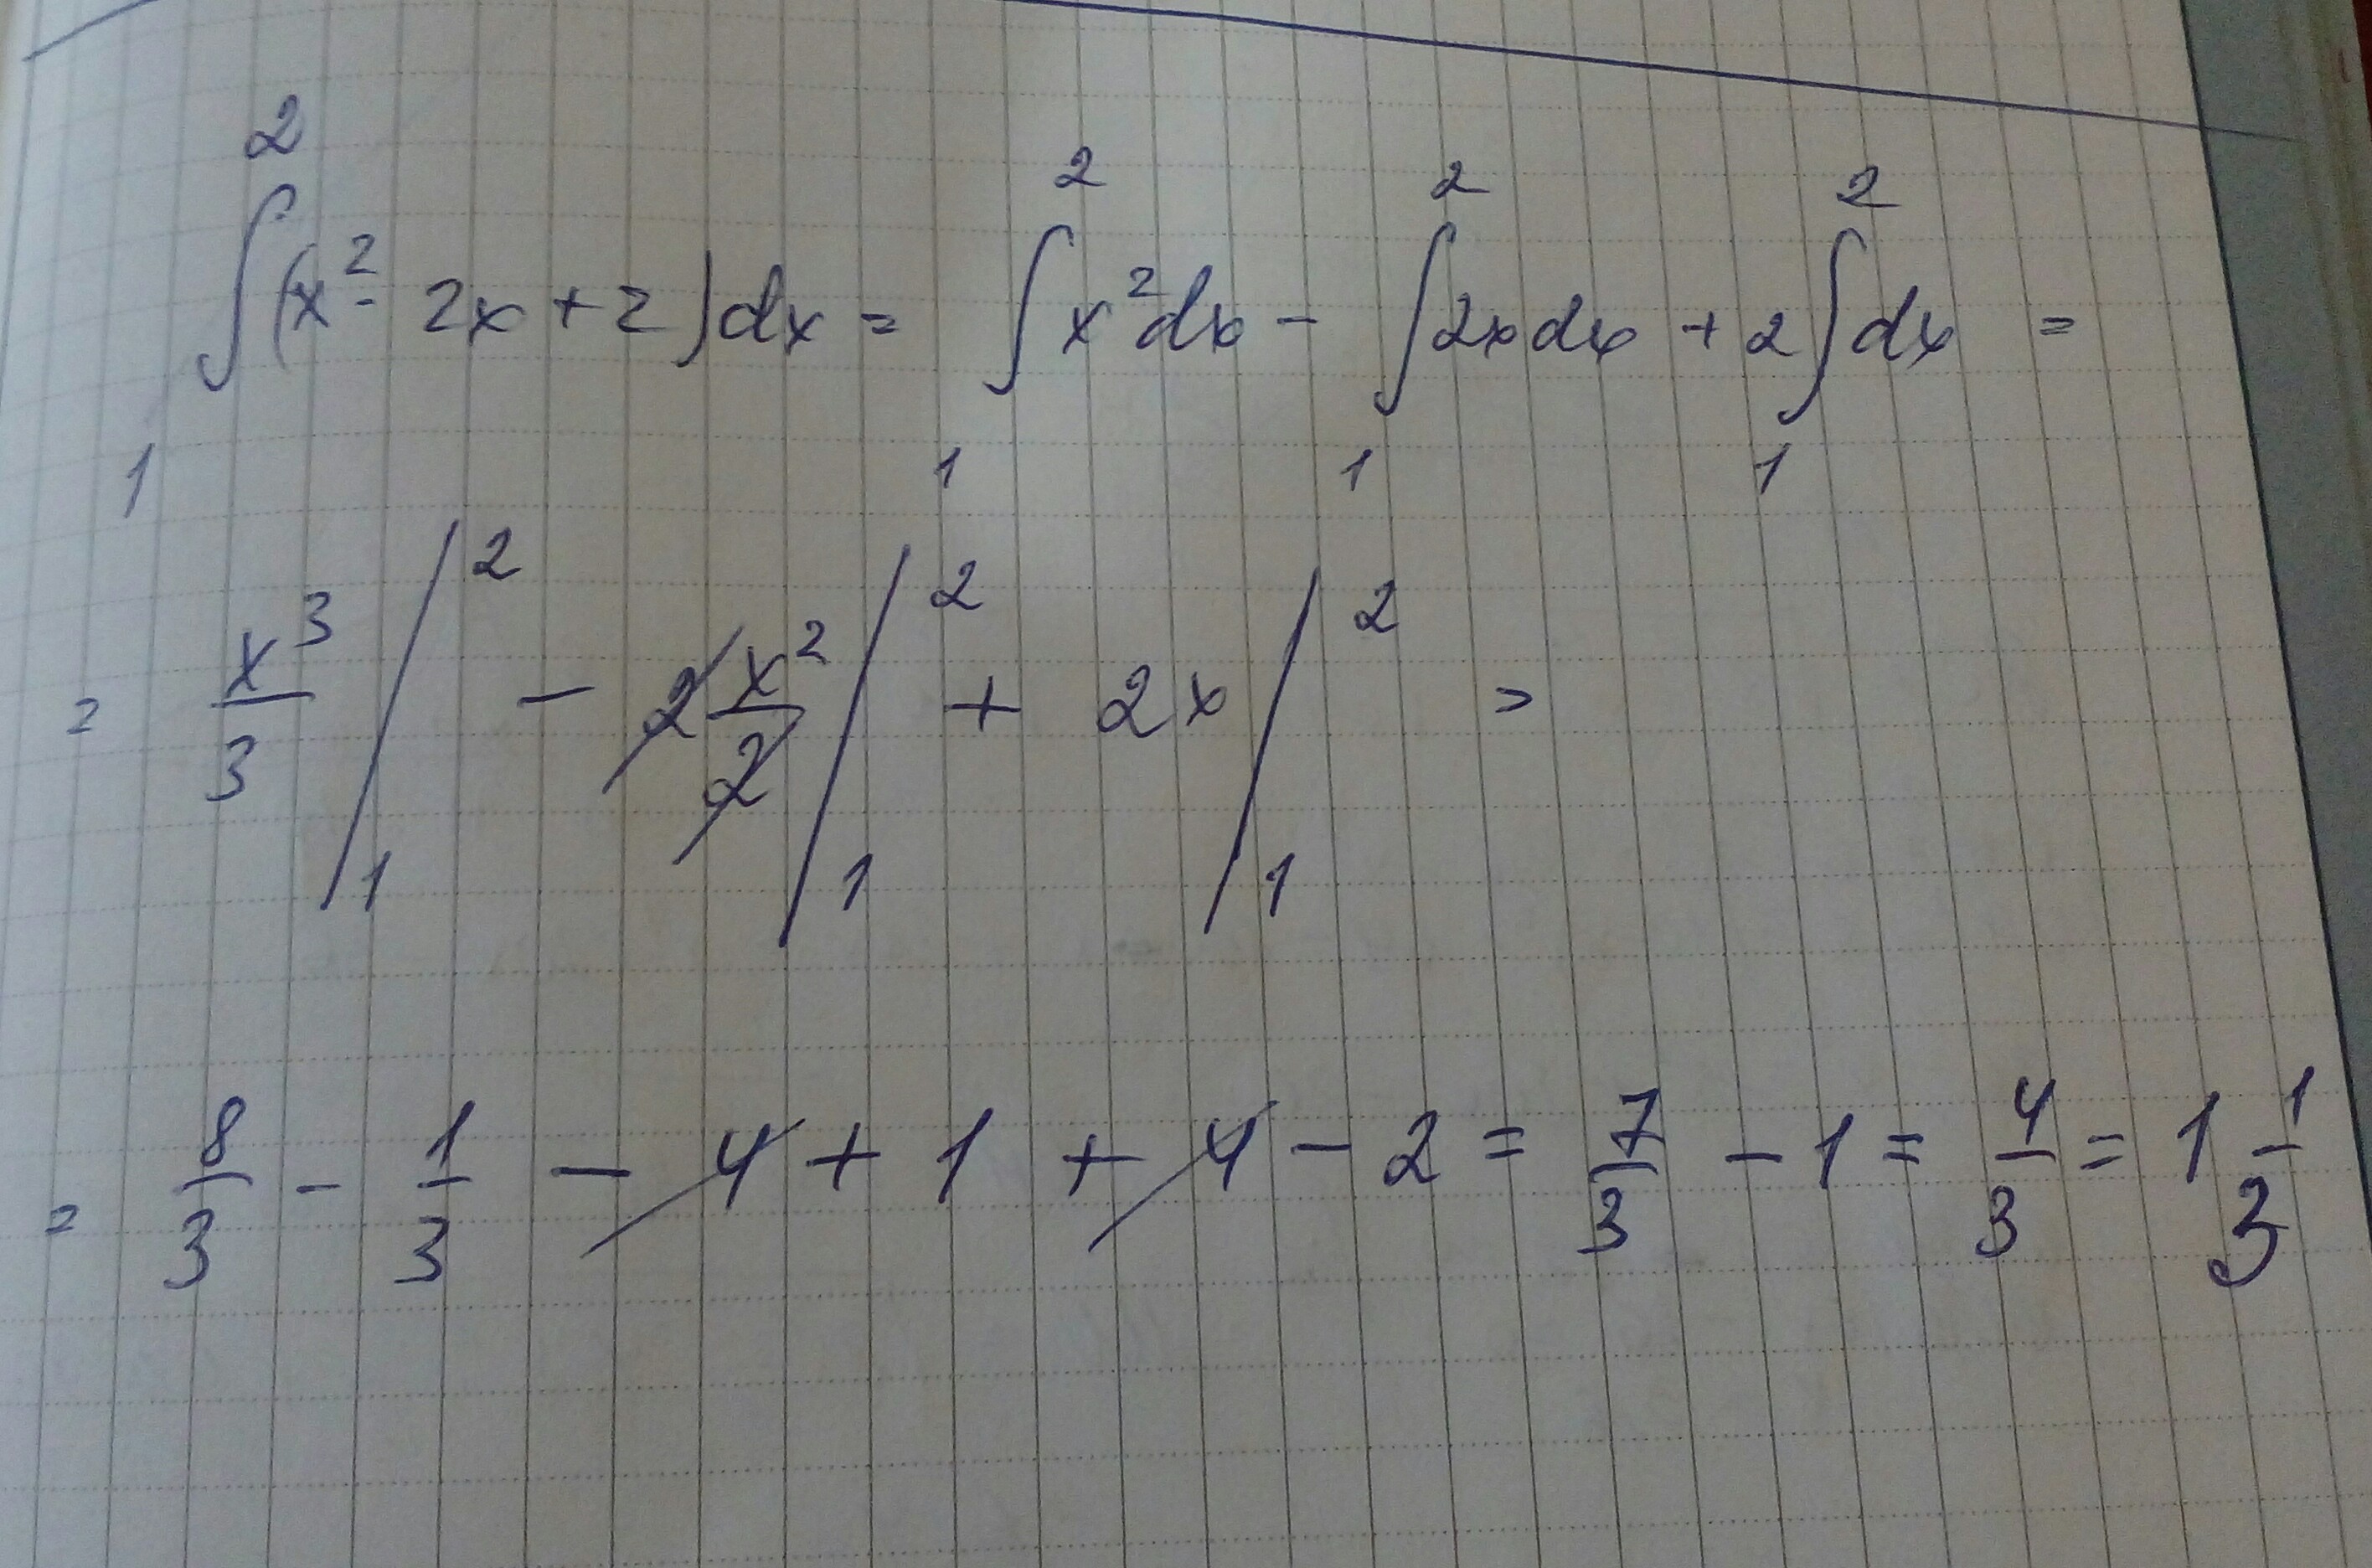 ∫₁² (x² - 2x + 2) dx = ∫₁² x² dx - ∫₁² 2x dx + 2 ∫₁² dx =
= x³/3 |₁² - 2 x²/2 |₁² + 2x |₁² =
= 8/3 - 1/3 - 4 + 1 + 4 - 2 = 7/3 - 1 = 4/3 = 1 1/3